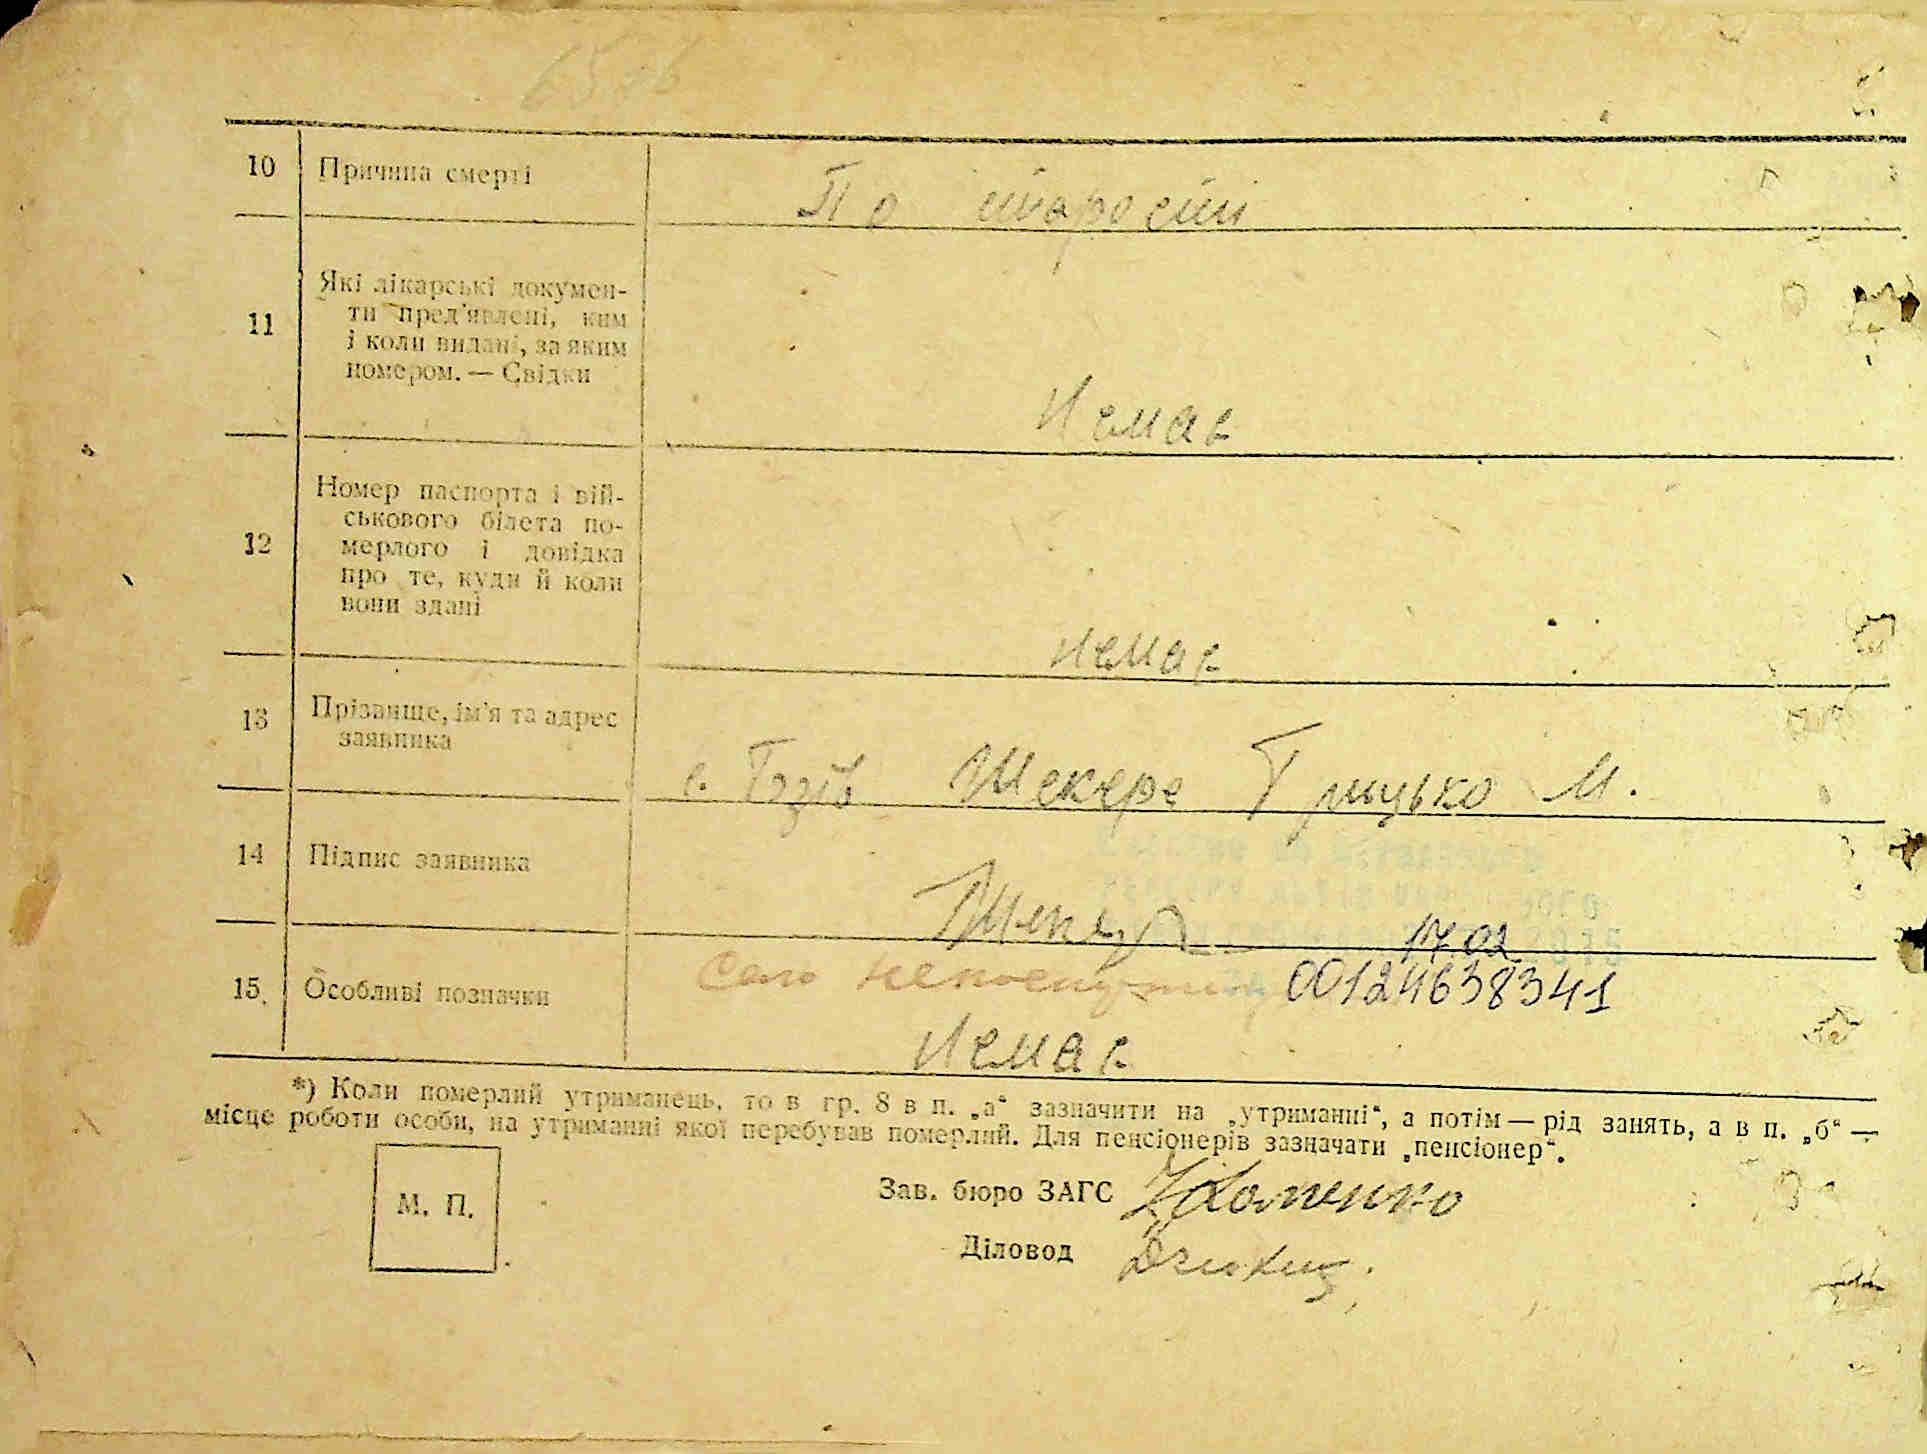 10 Причина смерті По старости
11 Які лікарські докумен-
ти пред'явлені, ким
і коли видані, за яким
номером. — Свідки
Немає
12 Номер паспорта і вій-
ськового білета по-
мерлого і довідка
про те, куди й коли
вони здані
немає
13 Прізвище, ім'я та адрес
заявника
с. Шекера Грицько М.
14 Підпис заявника
17.02
15. Особливі позначки Село 00124638341
Немає
*) Коли померлий утриманець, то в гр. 8 в п. „а“ зазначити на „утриманні“, а потім — рід занять, а в п. „б“ —
місце роботи особи, на утриманні якої перебував померлий. Для пенсіонерів зазначати „пенсіонер“.
М. П.
Зав. бюро ЗАГС
Діловод